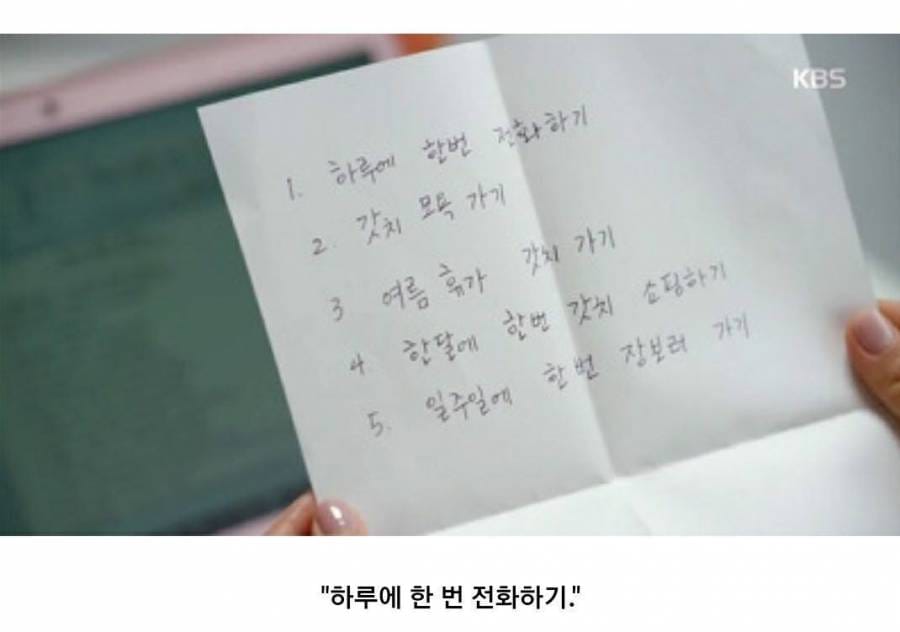 KBS
1. 하루에 한번 전화하기
2. 갓치 모욕 가기
3 여름 휴가 갓치 가기
4 한달에 한번 갓치 쇼핑하기
5. 일주일에 한번 장보러 가기
"하루에 한 번 전화하기."